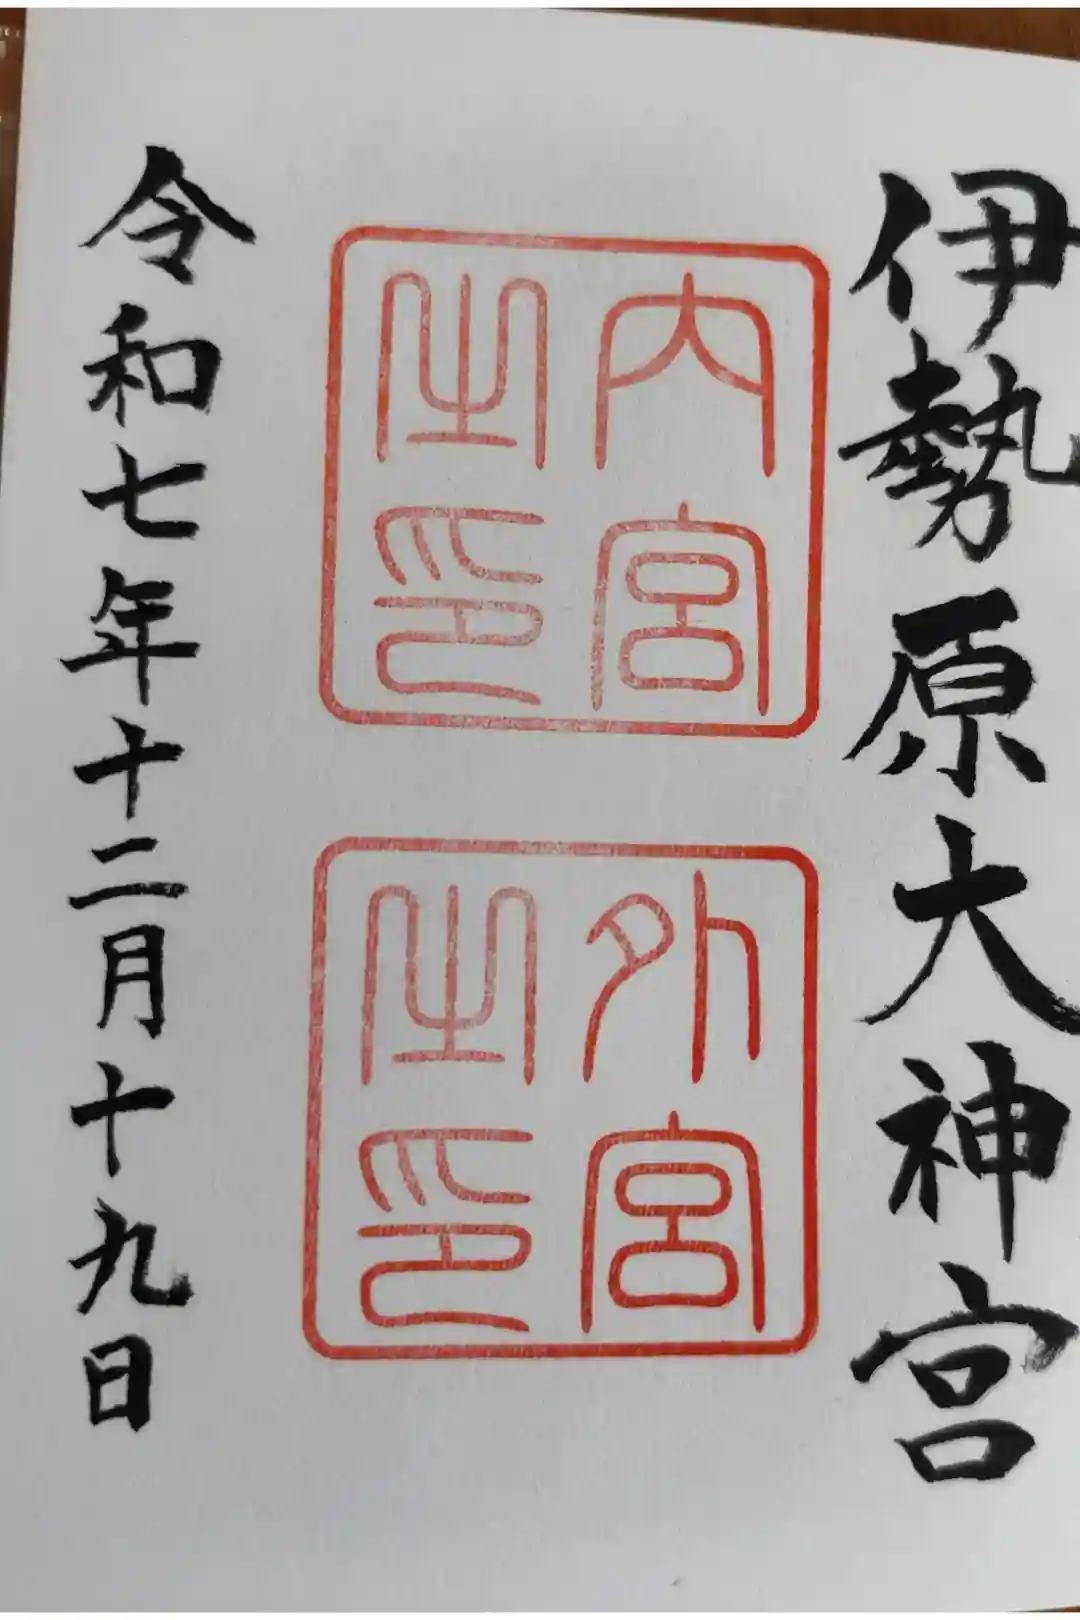 伊勢原大神宮
内宮
之印
外宮
之印
令和七年十二月十九日